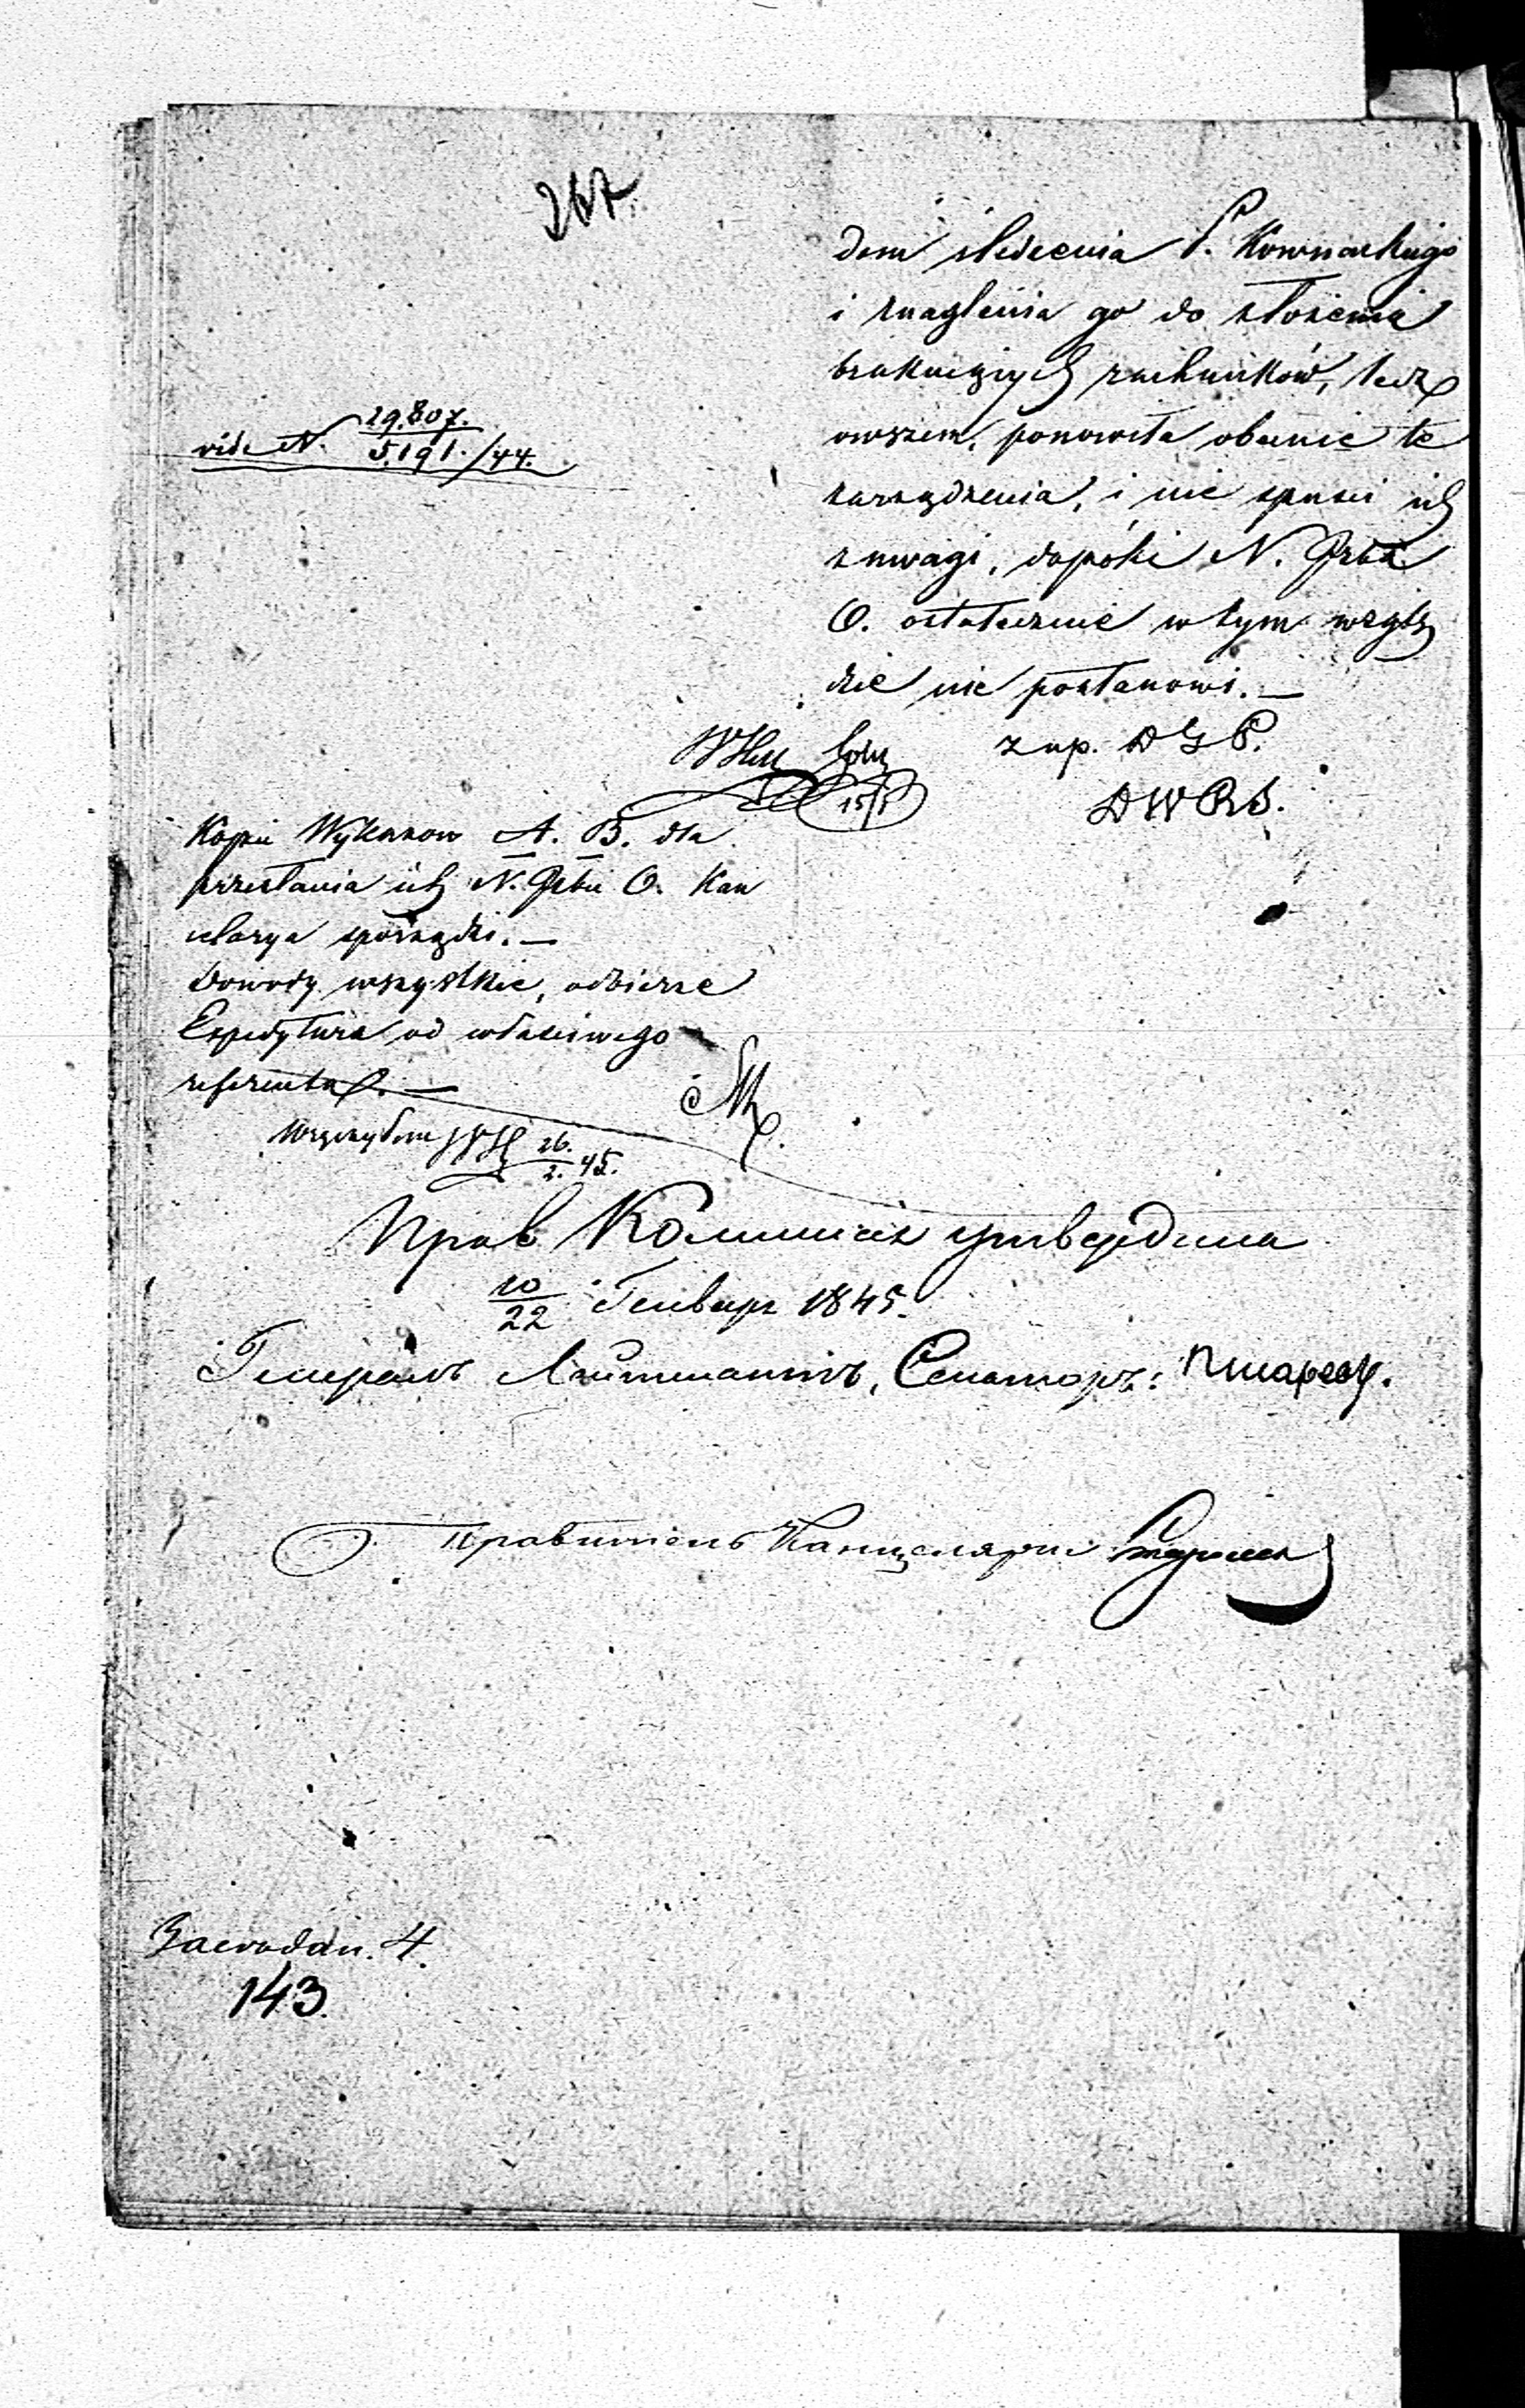 267.
dem śledzenia P. Kownackiego
i znaglenia go do złożenia
brakuiących rachunków, lecz
owszem, ponowiła obecnie te
zarządzenia, i nie spuści ich
z uwagi, dopóki N. Izba
O. ostatecznie w tym wzglę
dzie nie postanowi. —
vide N. 29,807./5,191./44.
z up. D G P.
D W R S.
15/1
Kopie Wykazow A. B. dla
przesłania ich N. Izbie O. Kan
celarya sporządzi. —
Dowody wszystkie, odbierze
Expedytura od właściwego
referenta. —
26./2. 45.
Прав. Коммисія утвердила
10/22 Генваря 1845.
Генералъ Лейтенантъ, Сенаторъ: Писаревъ.
Правитель Канцеляріи
4.
143.